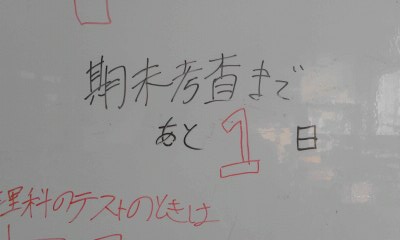 期末考査まで
あと1日
理科のテストのときは